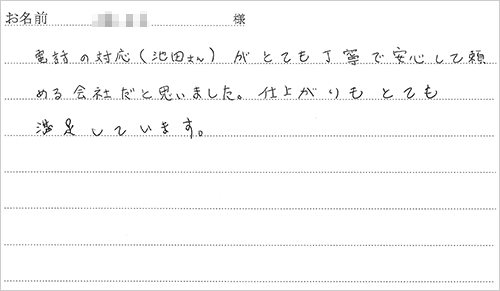 お名前 様
電話の対応(池田さん)がとても丁寧で安心して頼
める会社だと思いました。仕上がりもとても
満足しています。